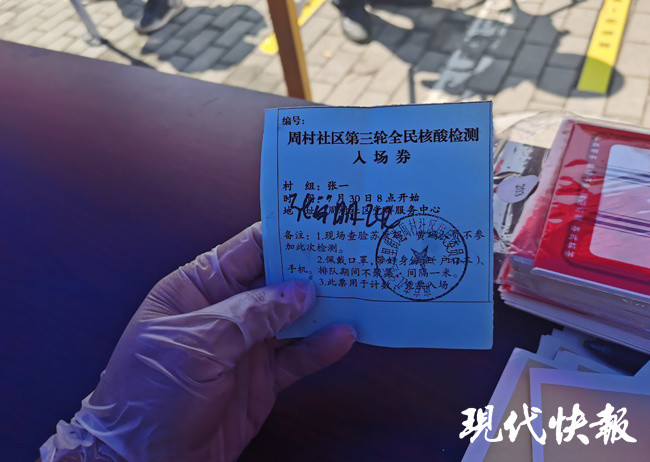 编号:
周村社区第三轮全民核酸检测
入场券
村 组:张一
时 间:7月30日8点开始
地 社区党群服务中心
备注:1.现场查验苏 不参
加此次检测。
2.佩戴口罩,带好身份证(户口本)、
手机,排队期间不聚集,间隔一米。
3.此票用于计数,凭票入场
現代快報